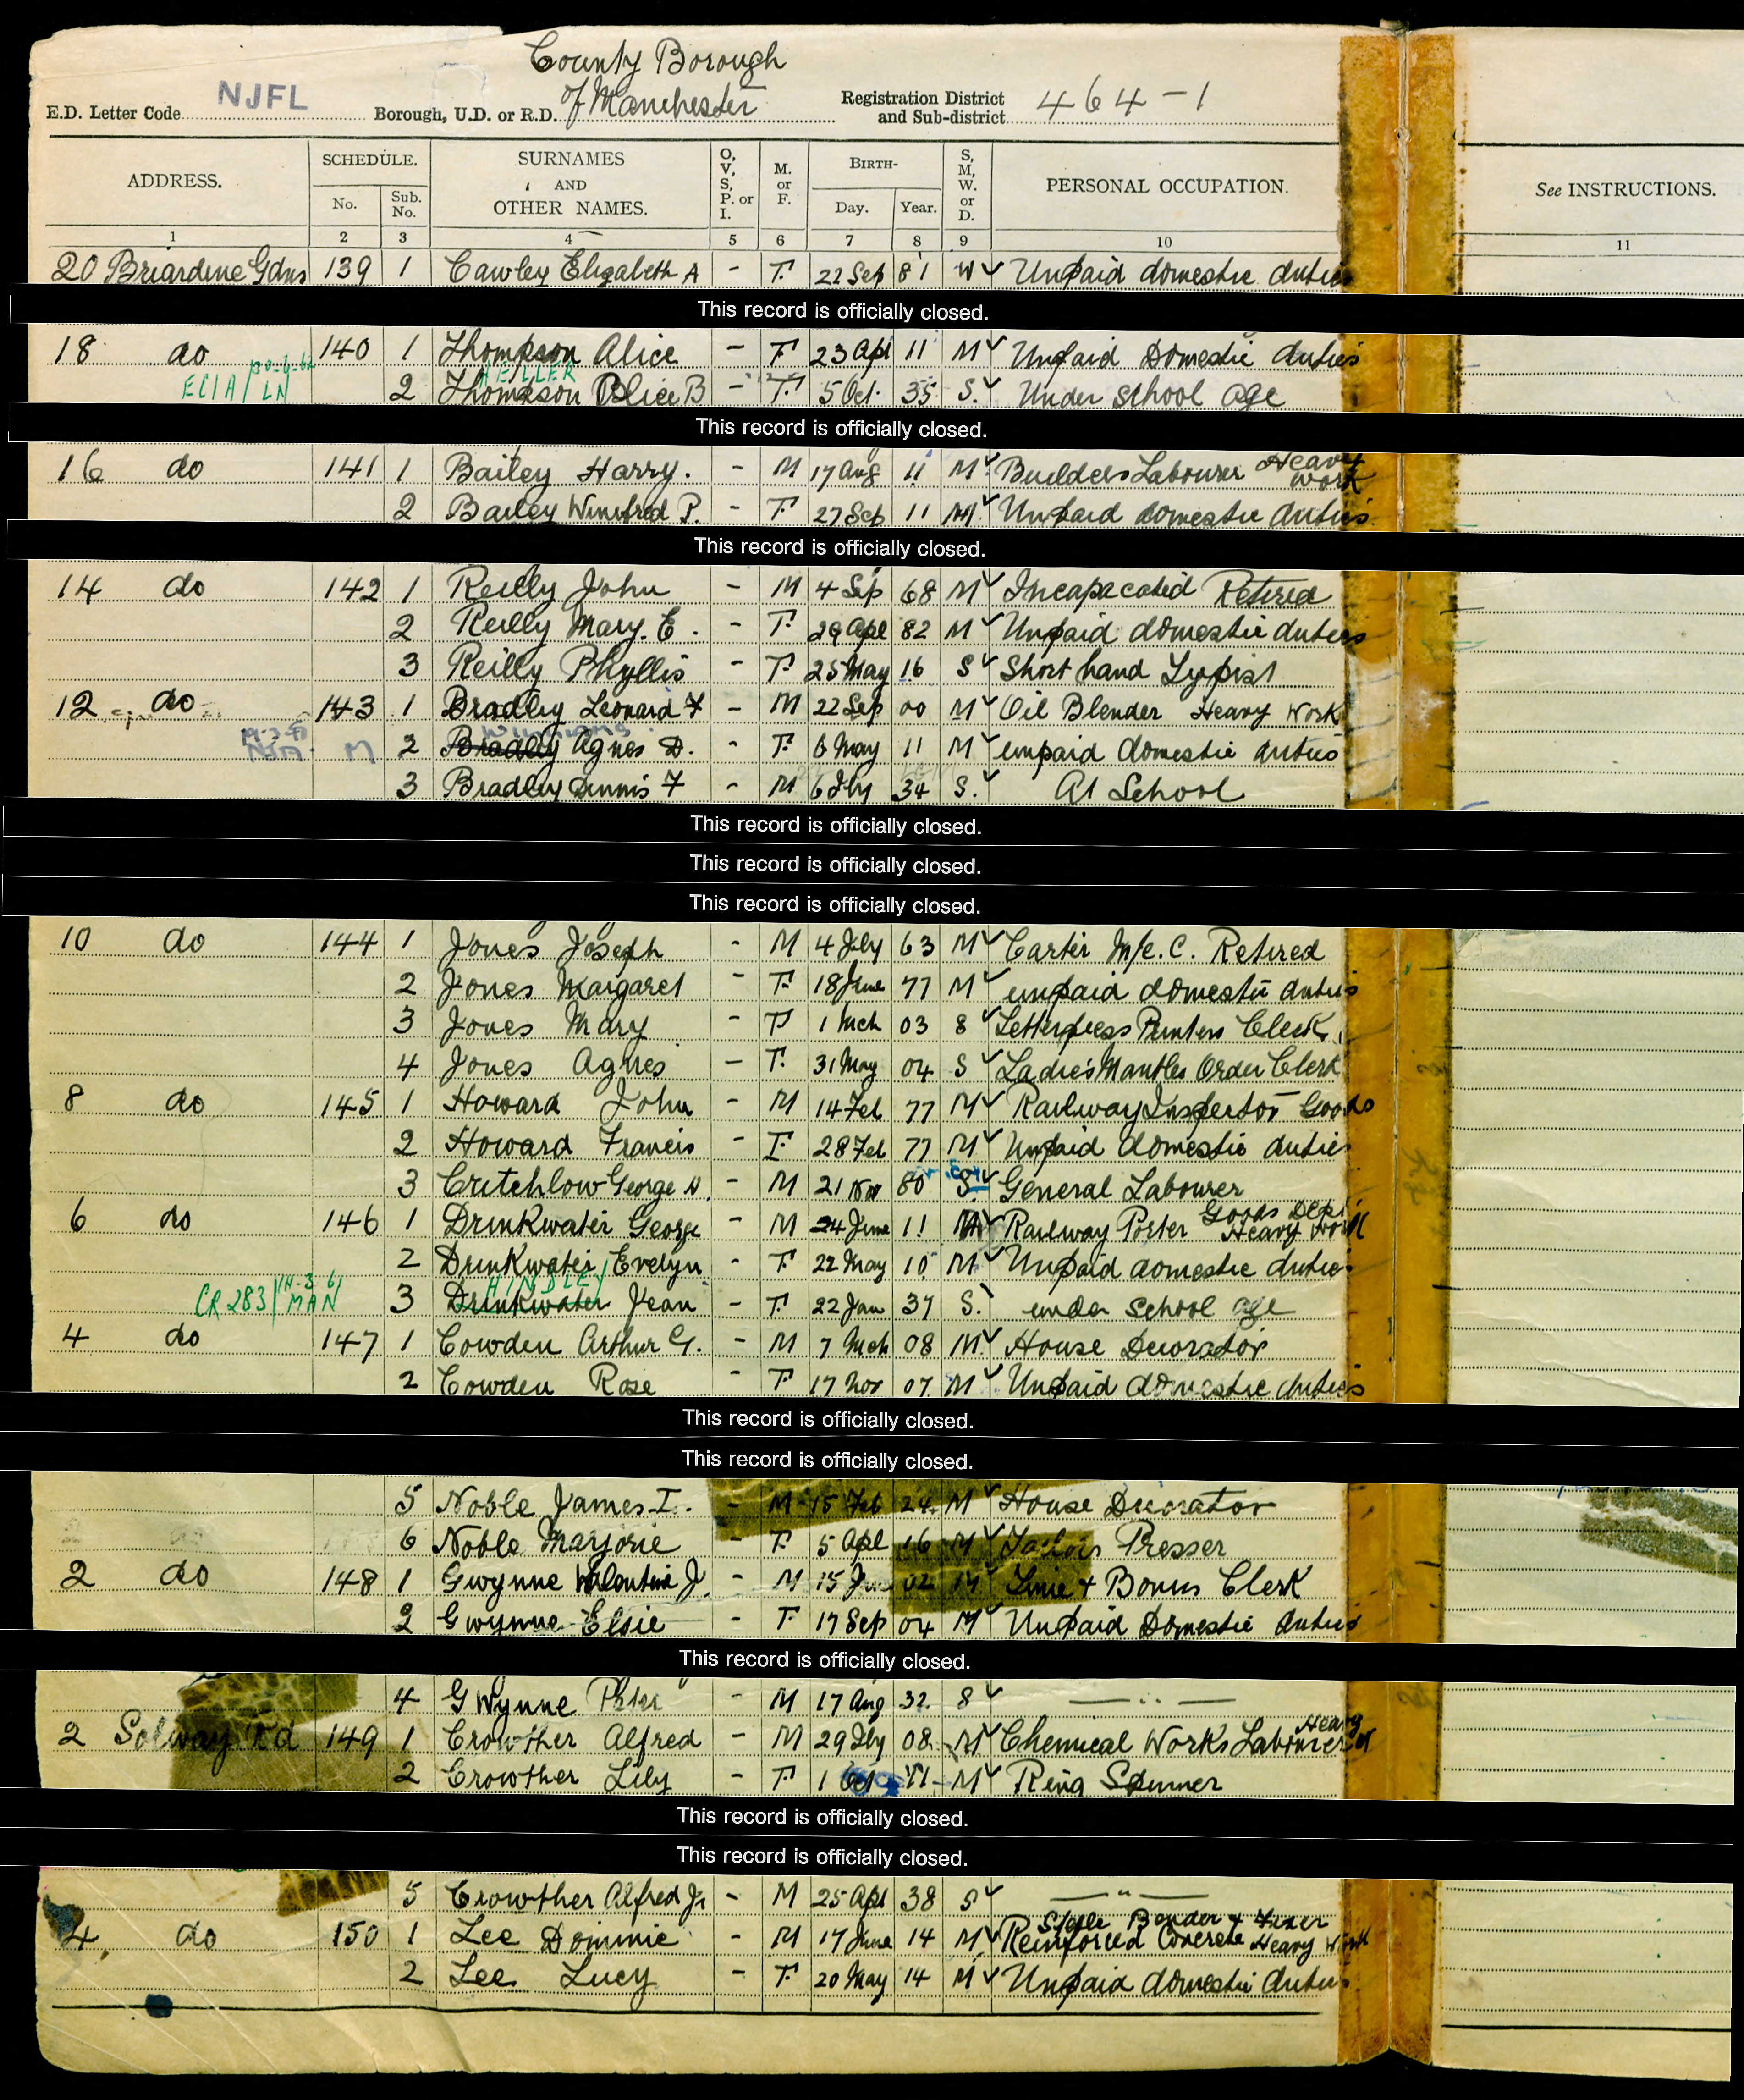 County Borough
E.D. Letter Code NJFL Borough, U.D. or R.D. of Manchester Registration District and Sub-district 464-1
ADDRESS. SCHEDULE. SURNAMES AND OTHER NAMES. O, V, S, P. or I. M. or F. BIRTH- S, M, W. or D. PERSONAL OCCUPATION. See INSTRUCTIONS.
No. Sub. No. Day. Year.
1 2 3 4 5 6 7 8 9 10 11
20 Briardene Gdns 139 1 Cawley Elizabeth A - F. 22 Sep 81 W Unpaid domestic duties
This record is officially closed.
18 do 140 1 Thompson Alice - F 23 Apl 11 M Unpaid Domestic duties
HELLER
ECIA/LN 2 Thompson Olice B - F. 5 Oct. 35 S. Under school age
This record is officially closed.
16 do 141 1 Bailey Harry. - M 17 Aug 11 M Builders Labourer Heavy work
2 Bailey Winifred P. - F 27 Sep 11 M Unpaid domestic duties
This record is officially closed.
14 do 142 1 Reilly John - M 4 Sep 68 M Incapacated Retired
2 Reilly Mary. E. - F. 29 Apl 82 M Unpaid domestic duties
3 Reilly Phyllis - F. 25 May 16 S Short hand Typist
12 do 143 1 Bradley Leonard F - M 22 Sep 00 M Oil Blender Heavy Work
M 2 Bradley Agnes D. - F. 6 May 11 M unpaid domestic duties
3 Bradley Dennis F - M 6 Jly 34 S. At School
This record is officially closed.
This record is officially closed.
This record is officially closed.
10 do 144 1 Jones Joseph - M 4 Jly 63 M Carter M/c. C. Retired
2 Jones Margaret - F. 18 June 77 M unpaid domestic duties
3 Jones Mary - F 1 Mch 03 S Letterpress Printers Clerk
4 Jones Agnes - F. 31 May 04 S Ladies Mantles Order Clerk
8 do 145 1 Howard John - M 14 Feb 77 M Railway Inspector Goods
2 Howard Francis - F. 28 Feb 77 M Unpaid domestic duties
3 Critchlow George - M 21 Nov 80 S. General Labourer
6 do 146 1 Drinkwater George - M 24 June 11 M Railway Porter Goods Dept Heavy Work
2 Drinkwater Evelyn - F. 22 May 10 M Unpaid domestic duties
HINDLEY
CR 283/MAN 3 Drinkwater Jean - F. 22 Jan 37 S. under school age
4 do 147 1 Cowden Arthur G. - M 7 Mch 08 M. House Decorator
2 Cowden Rose - F 17 Nov 07 M Unpaid domestic duties
This record is officially closed.
This record is officially closed.
5 Noble James I. - M 15 Feb 24 M House Decorator
6 Noble Marjorie - F. 5 Apl 16 M Tailors Presser
2 do 148 1 Gwynne Valentine J. - M 15 02 M Time + Bonus Clerk
2 Gwynne Elsie - F. 17 Sep 04 M Unpaid Domestic duties
This record is officially closed.
4 Gwynne Peter - M 17 Aug 32. S — " —
2 Solway Rd 149 1 Crowther Alfred - M 29 Jly 08 M Chemical Works Labourer Heavy
2 Crowther Lily - F 1 Oct 11 M Ring Spinner
This record is officially closed.
This record is officially closed.
5 Crowther Alfred Jr - M 25 Apl 38 S — " —
4. do 150 1 Lee Dominic - M 17 June 14 M Steele Bender + Fixer Reinforced Concrete Heavy Work
2 Lee Lucy - F. 20 May 14 M Unpaid domestic duties